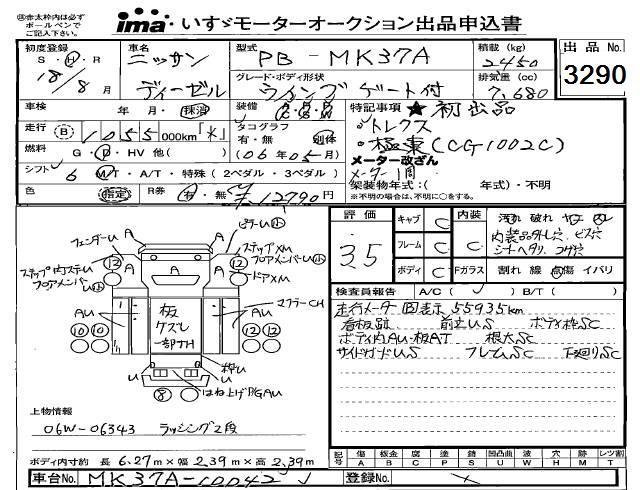 ㊟赤太枠内は必ず
ボールペンで
ご記入下さい。
ima いすゞモーターオークション出品申込書
初度登録
S・H・R
18/8月
車名
ニッサン
ディーゼル
型式
PB-MK37A
グレード・ボディ形状
ウイング ゲート付
積載(kg)
2450
排気量(cc)
7,680
出品No.
3290
車検
年・月・抹消
走行 B 1055,000km「*」
燃料
G・D・HV 他( )
シフト 6 M/T・A/T・特殊(2ペダル・3ペダル)
色 指定
R券 有・無 ¥12790円
装備
A/C P/S P/W
タコグラフ
有・無 別体
(06年05月)
特記事項 ★初出品
・トレクス
・極東(CG1002C)
メーター改ざん
メーター1周
架装物年式:( 年式)・不明
※不明の場合は、不明に○をする。
評価
3.5
キャブ C
フレーム C
ボディ C
内装 C
Fガラス
汚れ 破れ ヤケ
内装品外し穴 ビス穴
シートヘタリ コゲ穴
割れ 線 点傷 イバリ
検査員報告 A/C( ) B/T( )
走行メーター 図表示 55935km
看板跡 前立US ボディ枠SC
ボディ内AU・板AT 根太SC
サイドガードUS フレームSC 下廻りSC
フェンダーU
ピラーU小
ステップXM
フロアメンバーU小
ドアXM
ステップ内スチールU
フロアメンバーU小
マフラーCH
A
A
A
A
12
12
AU
AU
板
ケズレ
一部TH
10 10
12 12
枠U
U
U
8
はね上げPG AU
上物情報
06W-06343 ラッシング2段
ボディ内寸約 長 6.27m×幅 2.39m×高 2.39m
記号 傷 板金 腐 塗 錆 凹凸曲 波 穴 跡 レツ割
A B C P S U W H M T
車台No. MK37A-10042
登録No.